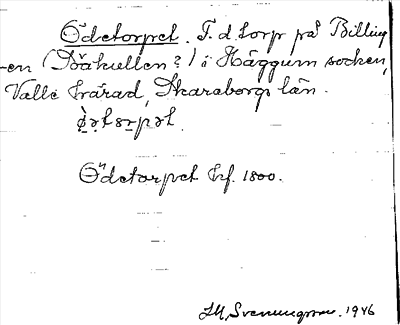 Ödetorpet. F. d. torp på Billing-
en (Båkullen?) i Häggum socken,
Valle härad, Skaraborgs län.
Ödetorpet Hf. 1800.
Svenungsson. 1946